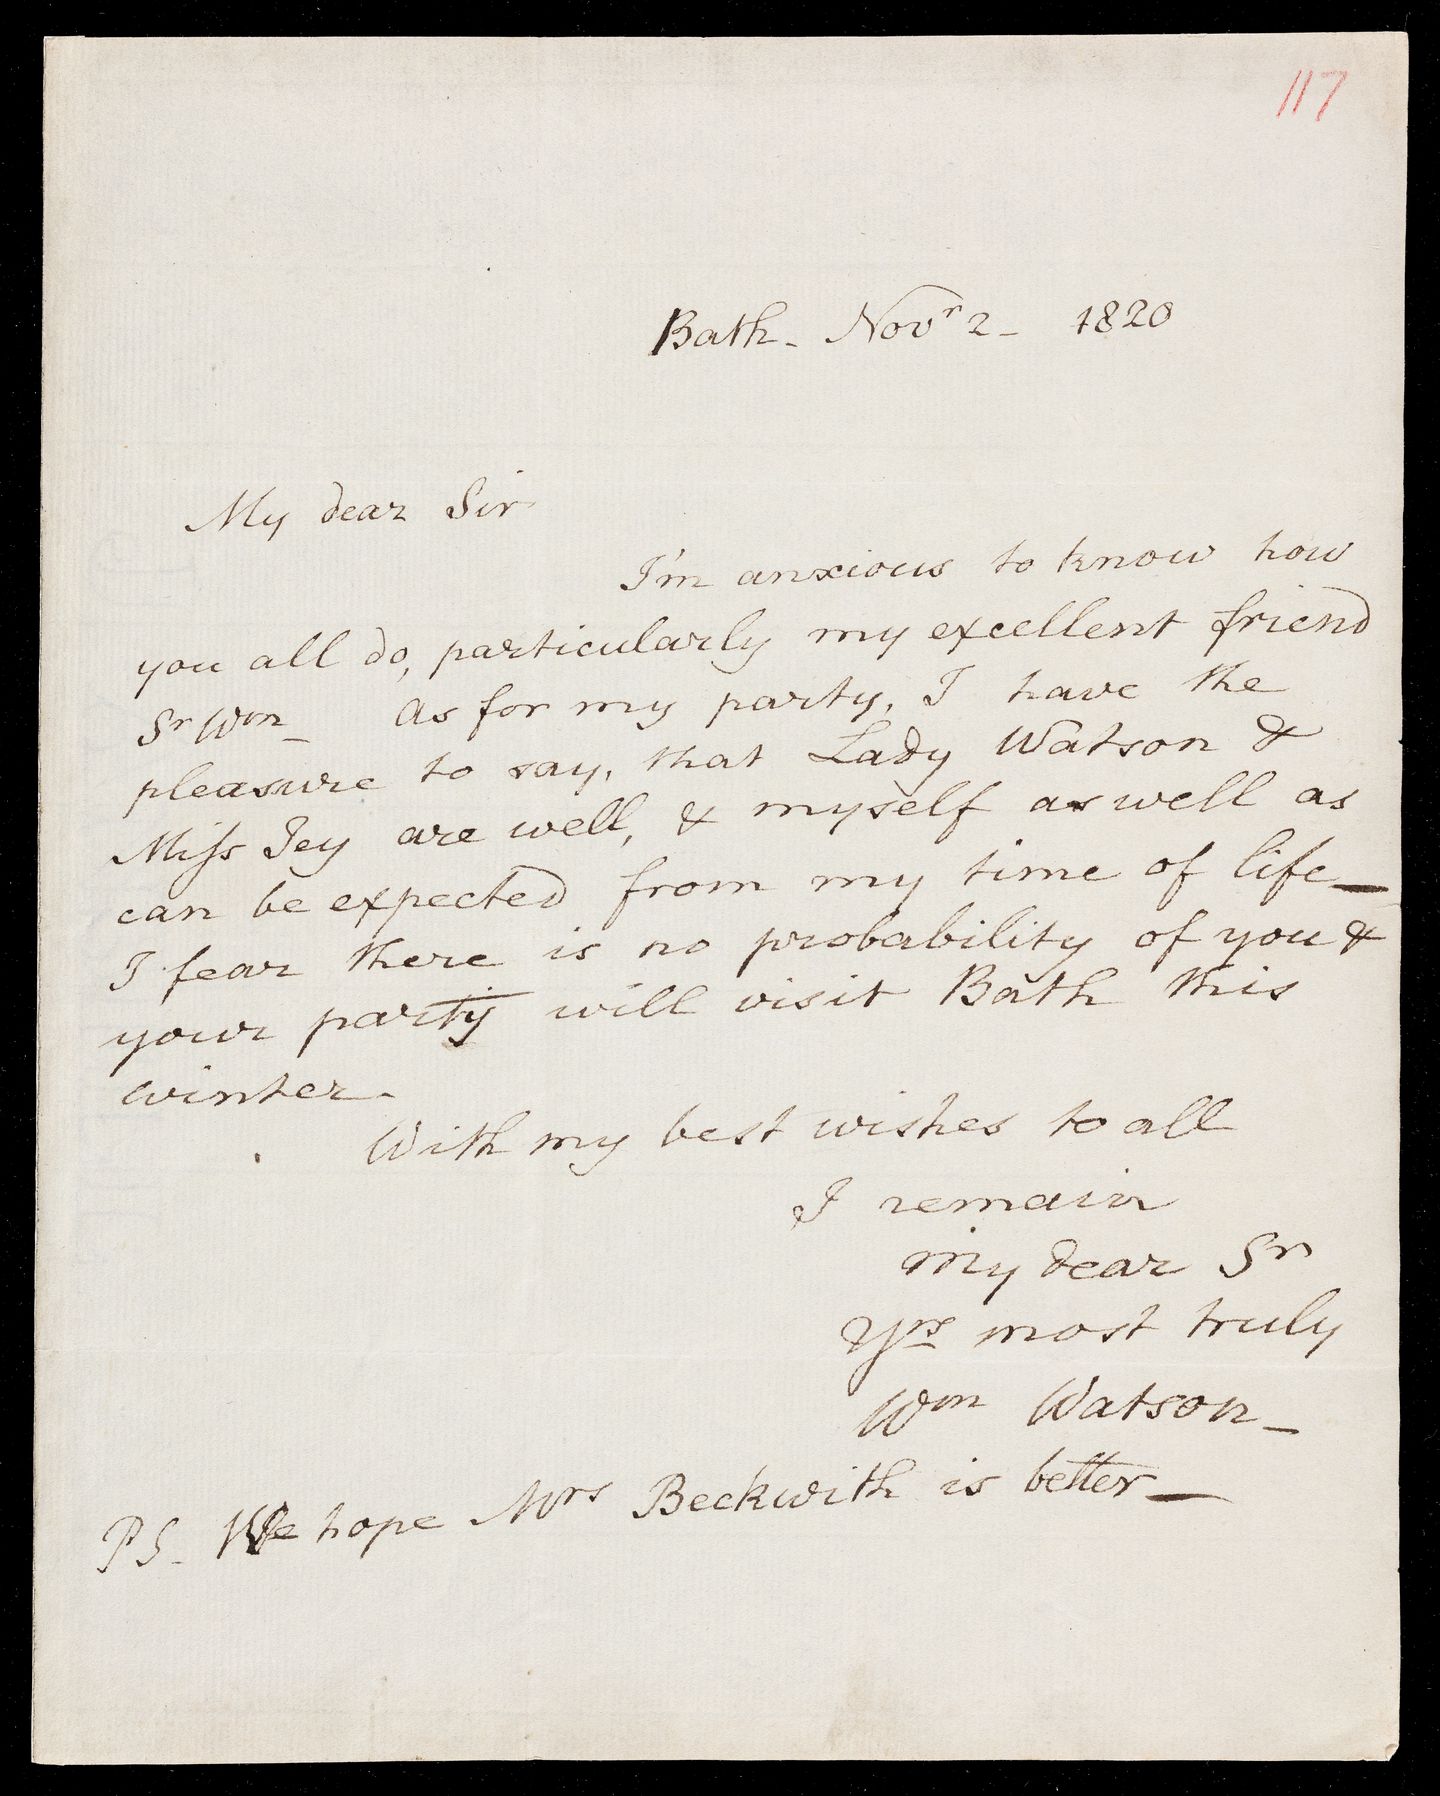 117
Bath - Novr 2 - 1820
My dear Sir
I'm anxious to know how
you all do, particularly my excellent friend
Sr Wm_ As for my party, I have the
pleasure to say, that Lady Watson &
Miss Jey are well, & myself as well as
can be expected from my time of life_
I fear there is no probability of you &
your party will visit Bath this
winter.
With my best wishes to all
I remain
my dear Sr
Yrs most truly
Wm Watson_
PS_ We hope Mrs Beckwith is better_